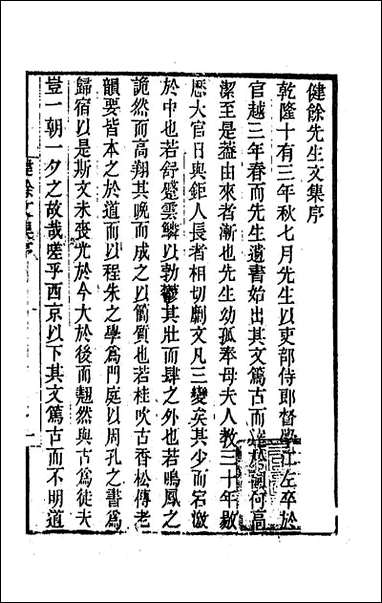 健餘先生文集序
乾隆十有三年秋七月先生以吏部侍郎督學江左卒於
官越三年春而先生遺書始出其文篤古而達於詞何高
潔至是蓋由來者漸也先生幼孤奉母夫人教三十年敭
歷大官日與鉅人長者相切劘文凡三變矣其少而宕激
於中也若舒蹙雲鱗以勃鬱其壯而肆之外也若鳴鳳之
詭然而高翔其晚而成之以簡質也若桂吹古香松傳老
韻要皆本之於道而以程朱之學爲門庭以周孔之書爲
歸宿以是斯文未喪光於今大於後而翹然與古爲徒夫
豈一朝一夕之故哉嗟乎西京以下其文篤古而不明道
健餘文集序
一